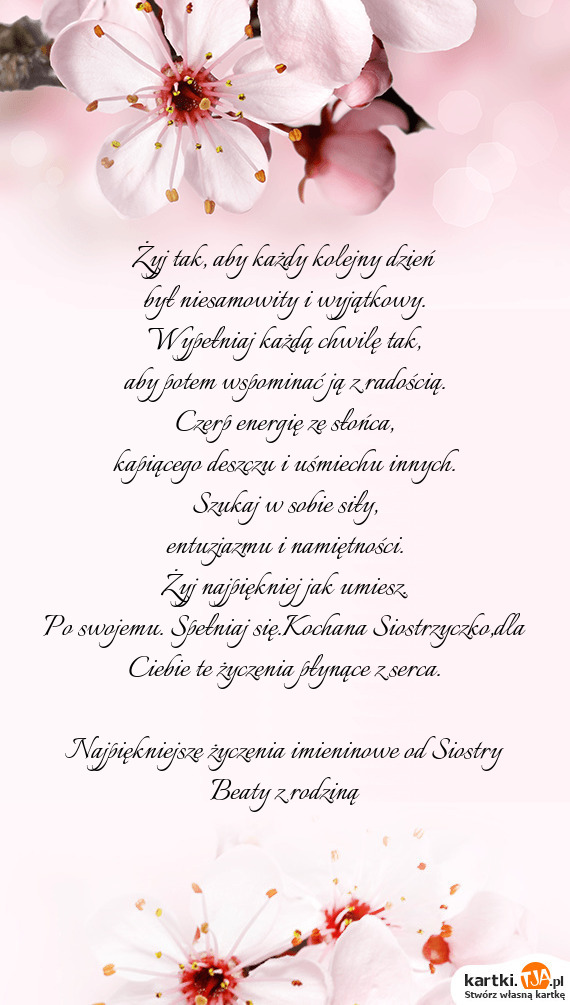 Żyj tak, aby każdy kolejny dzień
był niesamowity i wyjątkowy.
Wypełniaj każdą chwilę tak,
aby potem wspominać ją z radością.
Czerp energię ze słońca,
kapiącego deszczu i uśmiechu innych.
Szukaj w sobie siły,
entuzjazmu i namiętności.
Żyj najpiękniej jak umiesz.
Po swojemu. Spełniaj się.Kochana Siostrzyczko,dla
Ciebie te życzenia płynące z serca.
Najpiękniejsze życzenia imieninowe od Siostry
Beaty z rodziną
kartki.TJA.pl
Stwórz własną kartkę